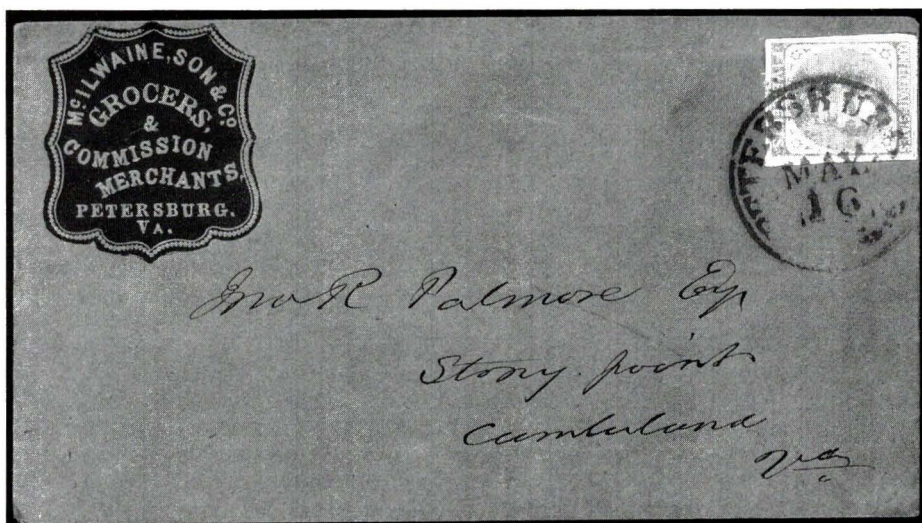 McILWAINE, SON & Co
GROCERS,
&
COMMISSION
MERCHANTS,
PETERSBURG.
VA.
MAY
16
Jno R Palmore Esq
Stony point
Cumberland
Va